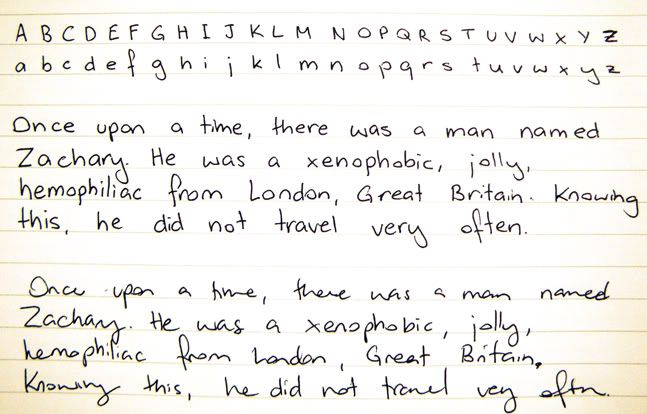 A B C D E F G H I J K L M N O P Q R S T U V W X Y Z
a b c d e f g h i j k l m n o p q r s t u v w x y z
Once upon a time, there was a man named
Zachary. He was a xenophobic, jolly,
hemophiliac from London, Great Britain. Knowing
this, he did not travel very often.
Once upon a time, there was a man named
Zachary. He was a xenophobic, jolly,
hemophiliac from London, Great Britain.
Knowing this, he did not travel very often.